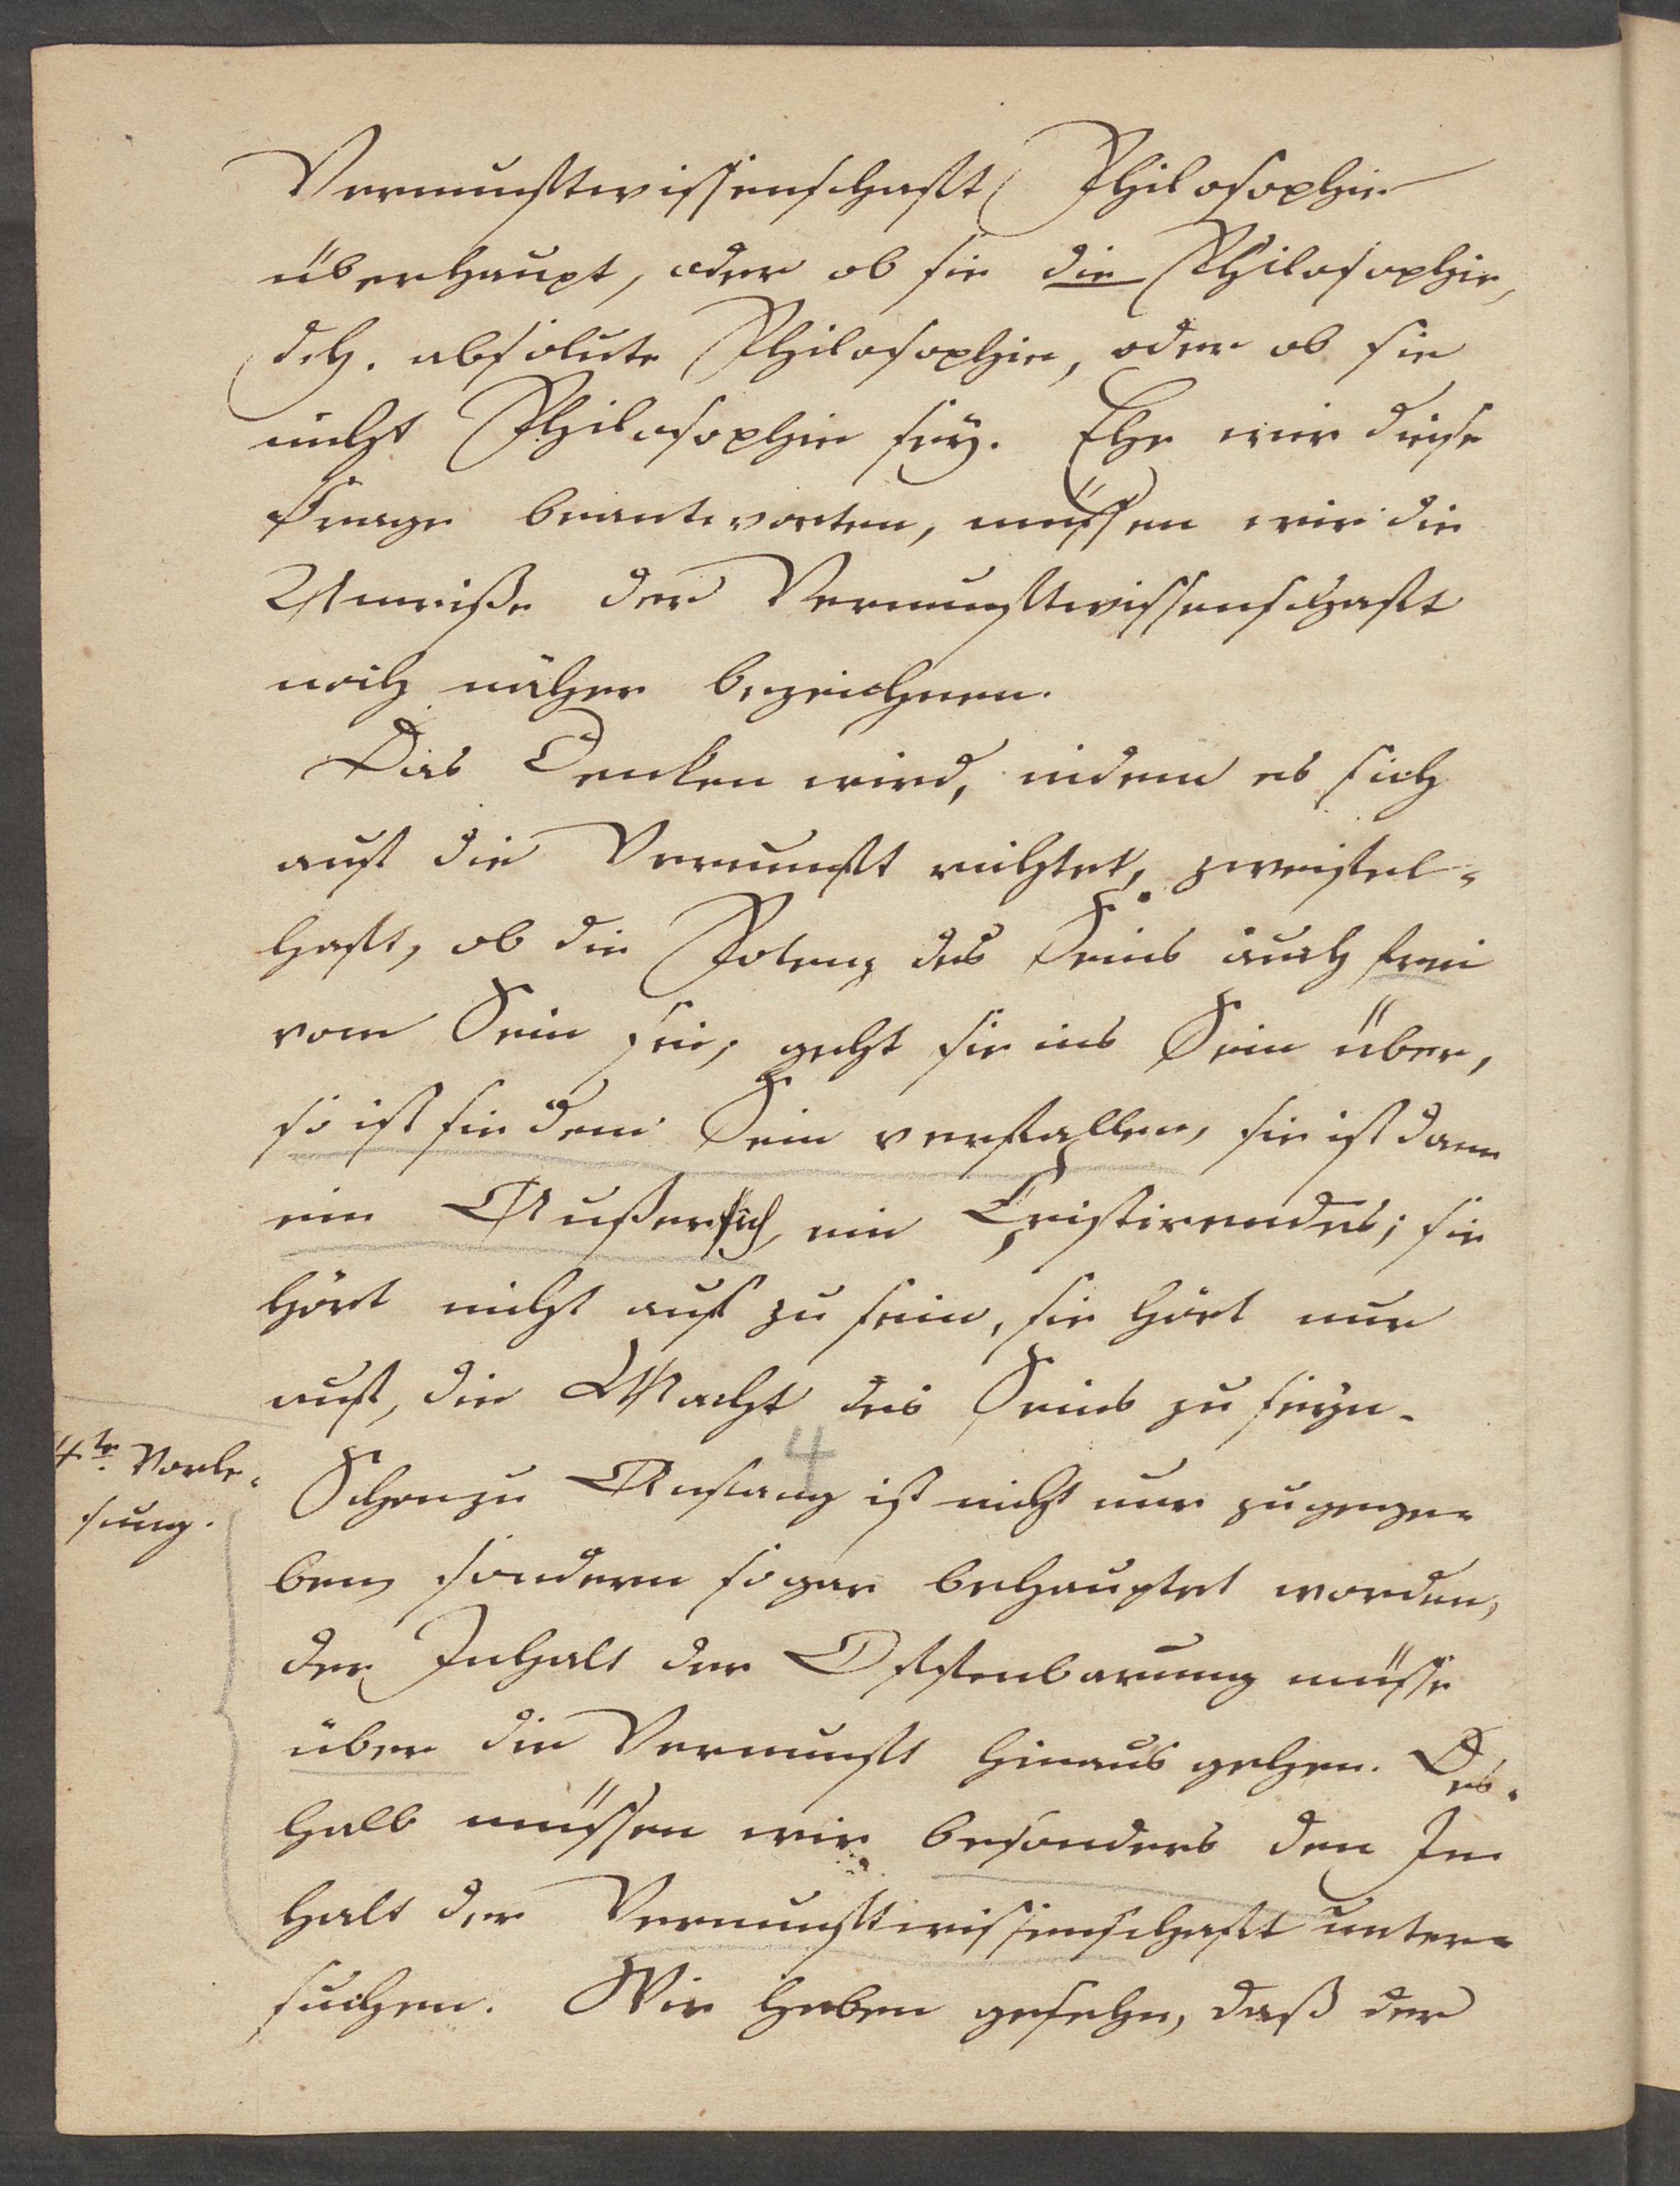 Vernunftwissenschaft Philosophie
überhaupt, oder ob sie die Philosophie,
d.h. absolute Philosophie, oder ob sie
nicht Philosophie sey. Ehe wir diese
Frage beantworten, müssen wir die
Umriße der Vernunftwissenschaft
noch näher bezeichnen.
Das Denken wird, indem es sich
auf die Vernunft richtet, zweifel-
haft, ob die Potenz des Seins auch frei
vom Sein sei; geht sie ins Sein über,
so ist sie dem Sein verfallen, sie ist dann
ein Außersich, ein Existirendes; sie
hört nicht auf zu sein, sie hört nur
auf, die Macht des Seins zu seyn.
4te Vorle-
sung.
4
Schon zu Anfang ist nicht nur zugege-
ben, sondern sogar behauptet worden,
der Inhalt der Offenbarung müsse
über die Vernunft hinaus gehen. Des-
halb müssen wir besonders den In
halt der Vernunftwissenschaft unter-
suchen. Wir haben gesehn, daß der